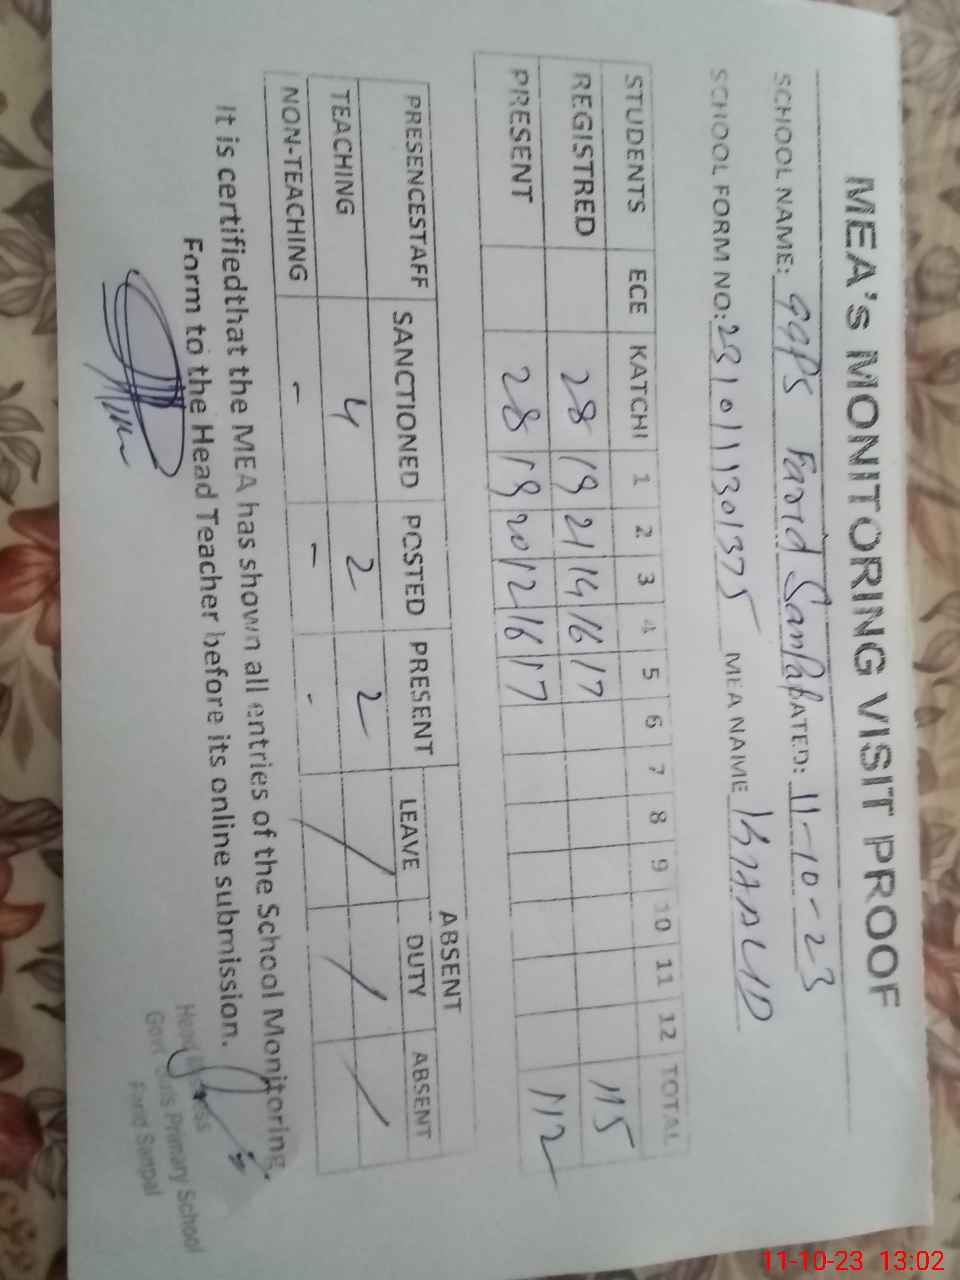 MEA'S MONITORING VISIT PROOF
SCHOOL NAME: GGPS Farid Sanpal DATED: 11-10-23
SCHOOL FORM NO: 231011301375 MEA NAME KHALID
STUDENTS ECE KATCHI 1 2 3 4 5 6 7 8 9 10 11 12 TOTAL
REGISTRED 28 19 21 14 16 17 115
PRESENT 28 19 20 12 16 17 112
ABSENT
PRESENCESTAFF SANCTIONED POSTED PRESENT LEAVE DUTY ABSENT
TEACHING 4 2 2 / / /
NON-TEACHING - - -
It is certifiedthat the MEA has shown all entries of the School Monitoring
Form to the Head Teacher before its online submission.
Head
Govt Girls Primary School
Farid Sanpal
11-10-23 13:02